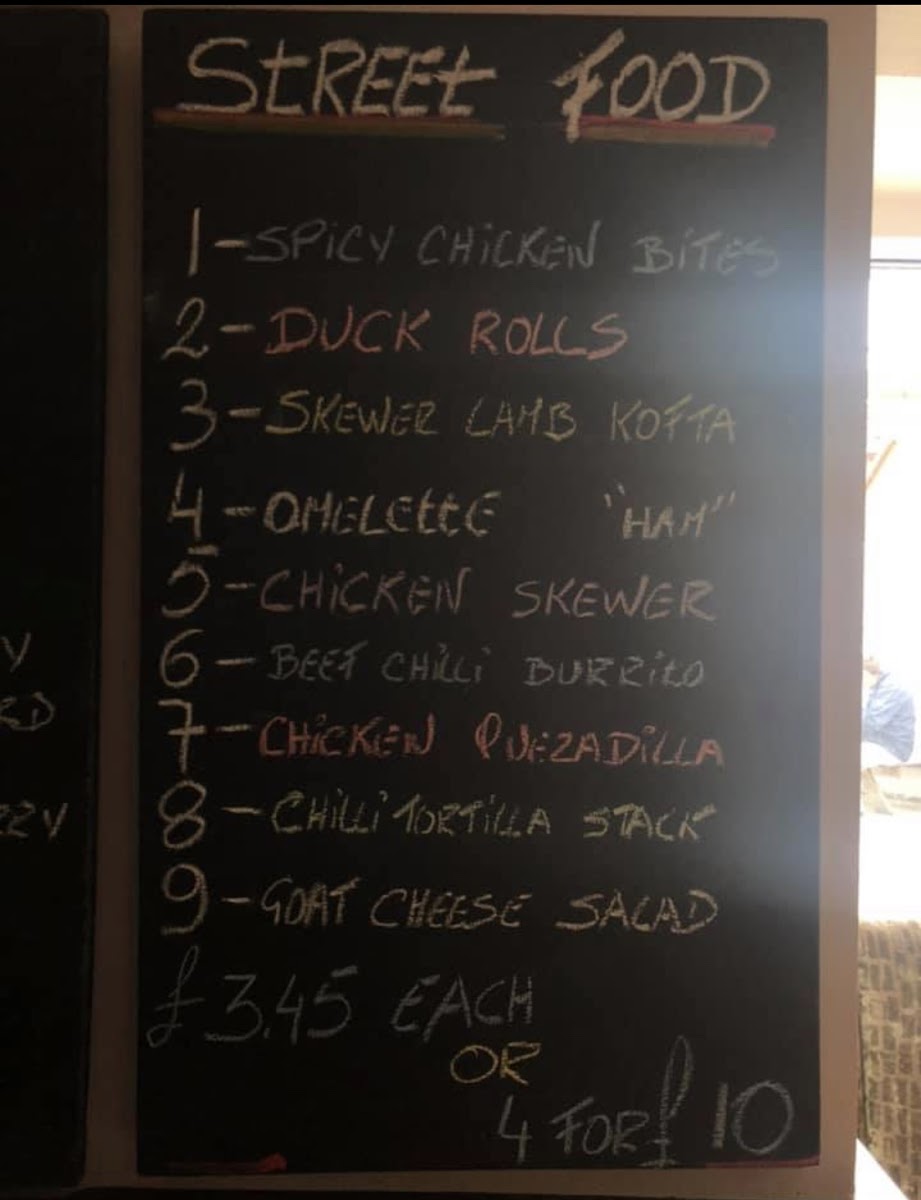 StREEt FOOD
1-SPiCY CHiCKEN BiTES
2- DUCK ROLLS
3- SKEWER LAMB KOFTA
4-OMELEttE "HAM"
5-CHiCKEN SKEWER
6- BEEF CHiLLi BURRitO
7-CHiCKEN QUEZADiLLA
8-CHiLLi TORTiLLA STACK
9-GOAT CHEESE SALAD
£3.45 EACH
OR
4 FOR £10